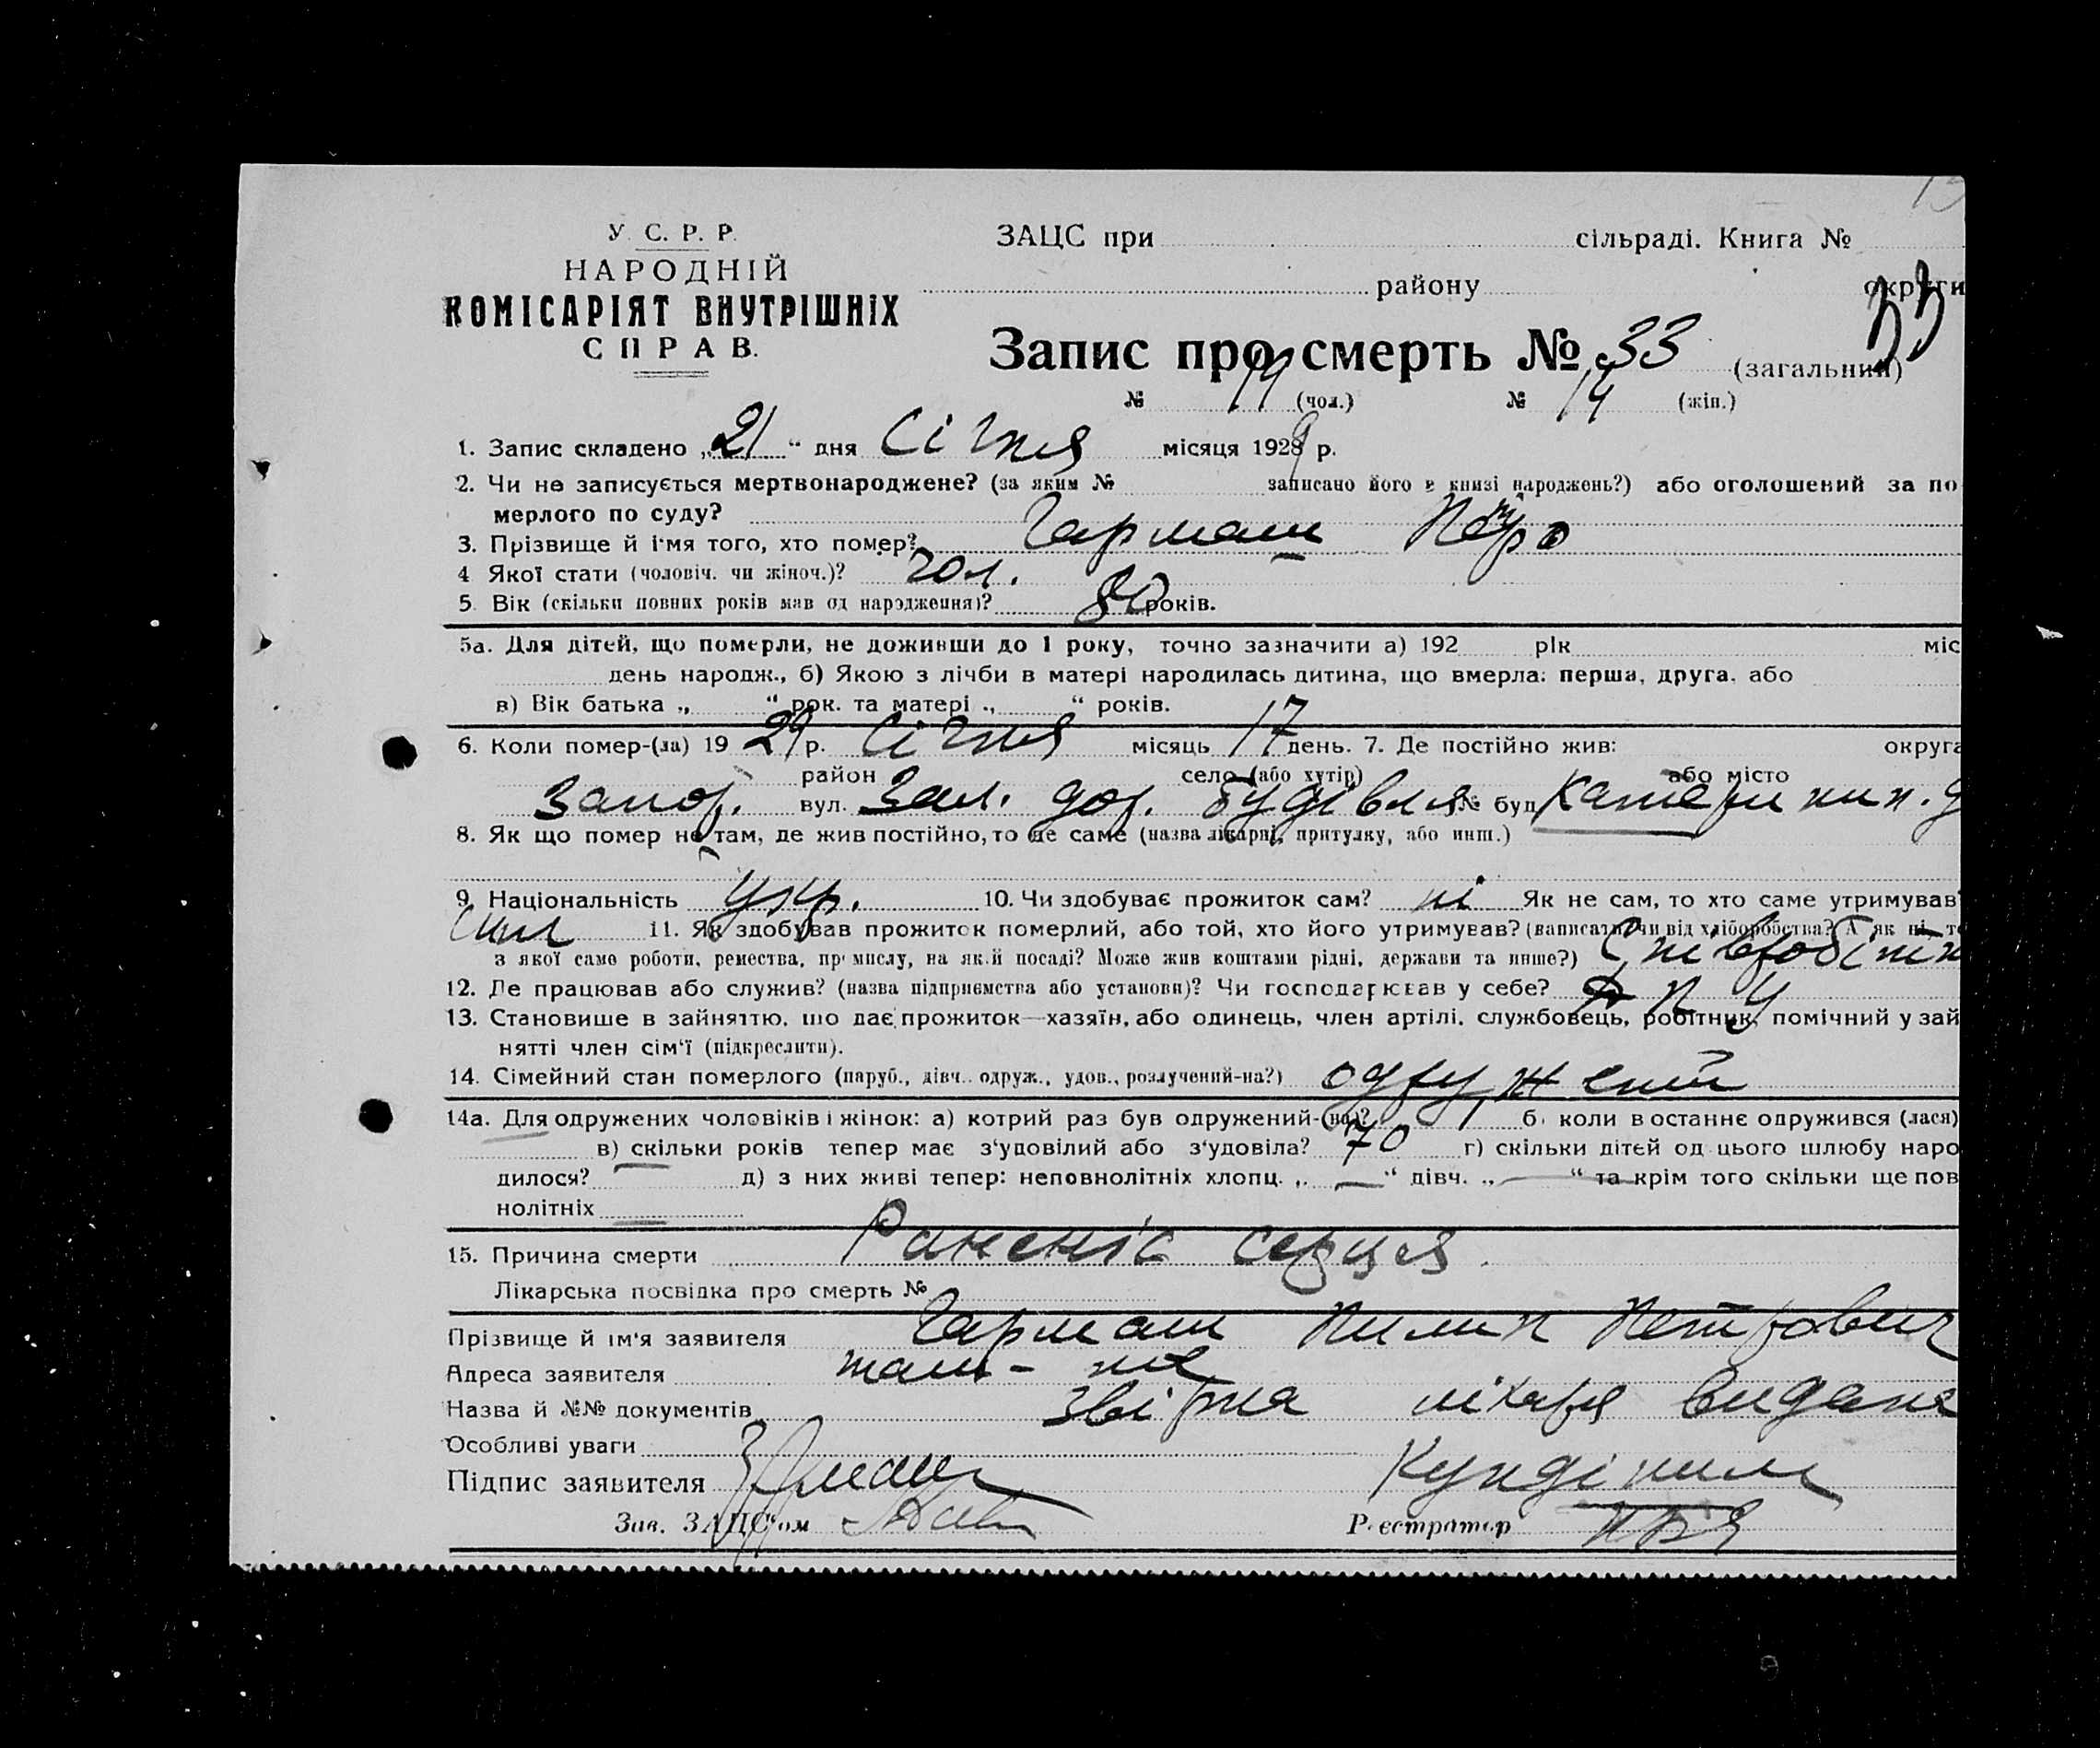 У. С. Р. Р.
НАРОДНІЙ
КОМІСАРІЯТ ВНУТРІШНІХ
СПРАВ.
ЗАЦС при сільраді. Книга №
району округи
Запис про смерть № 33 (загальний)
33
№ 19 (чол.) № 14 (жін.)
1. Запис складено „21“ дня Січня місяця 1929 р.
2. Чи не записується мертвонароджене? (за яким № записано його в книзі народжень?) або оголошений за по
мерлого по суду?
3. Прізвище й ім'я того, хто помер? Гармаш Петро
4 Якої стати (чоловіч. чи жіноч.)? чол.
5. Вік (скільки повних років мав од народження)? 80 років.
5а. Для дітей, що померли, не доживши до 1 року, точно зазначити а) 192 рік міс
день народж., б) Якою з лічби в матері народилась дитина, що вмерла: перша, друга, або
в) Вік батька „ “ рок. та матері „ “ років.
6. Коли помер-(ла) 1929 р. Січня місяць 17 день. 7. Де постійно жив: округа
район село (або хутір) або місто
Запор. вул. Зал. дор. будівля № буд Катерин
8. Як що помер не там, де жив постійно, то де саме (назва лікарні, притулку, або инш.)
9. Національність Укр. 10. Чи здобуває прожиток сам? ні Як не сам, то хто саме утримував?
син 11. Як здобував прожиток померлий, або той, хто його утримував? (написати чи від хліборобства? А як ні, то
з якої саме роботи, ремества, промислу, на якій посаді? Може жив коштами рідні, держави та инше?) Співробітн
12. Де працював або служив? (назва підприємства або установи)? Чи господарював у себе? Д П У
13. Становише в зайняттю, що дає прожиток—хазяїн, або одинець, член артілі, службовець, робітник, помічний у зай
нятті член сім'ї (підкреслити).
14. Сімейний стан померлого (паруб., дівч. одруж., удов., розлучений-на?) одружений
14а. Для одружених чоловіків і жінок: а) котрий раз був одружений-(на)? 1 б) коли востаннє одружився (лася)
в) скільки років тепер має з'удовілий або з'удовіла? 70 г) скільки дітей од цього шлюбу наро
дилося? — д) з них живі тепер: неповнолітніх хлопц. „ — “ дівч. „ — “ та крім того скільки ще пов
нолітніх —
15. Причина смерти серця
Лікарська посвідка про смерть №
Прізвище й ім'я заявителя Гармаш Пилип Петрович
Адреса заявителя там-же
Назва й №№ документів лікаря видана
Особливі уваги
Підпис заявителя
Зав. ЗАЦС'ом Реєстратор